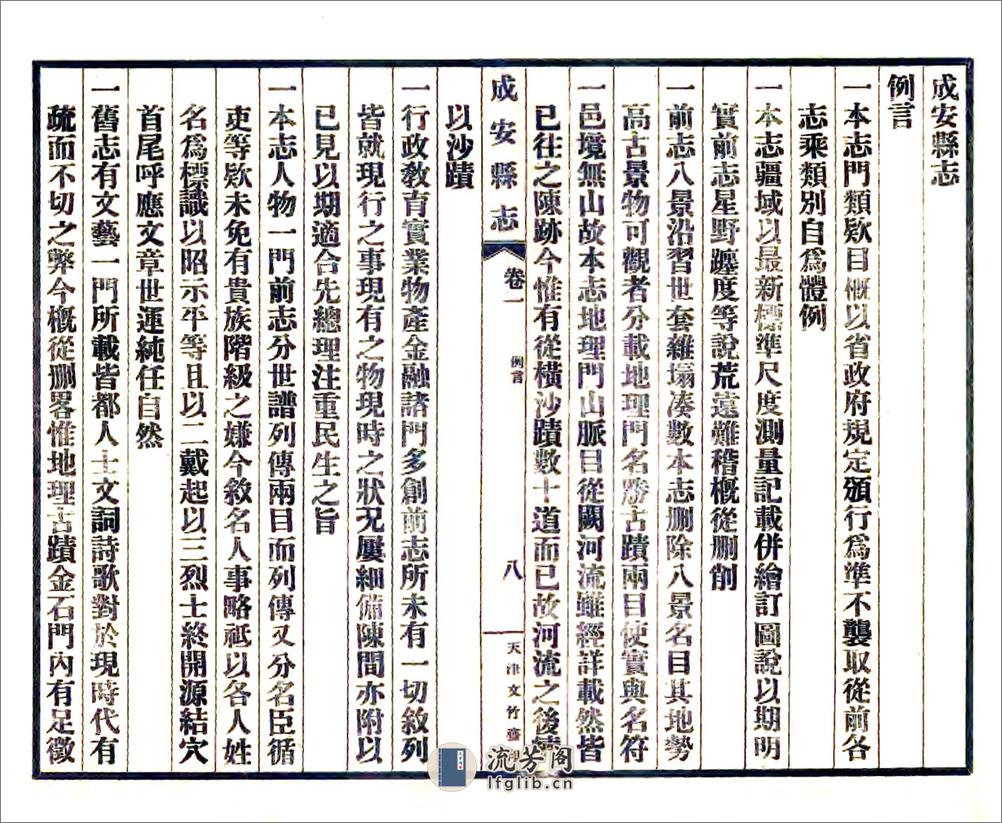 成安縣志
例言
一本志門類欵目槪以省政府規定頒行爲準不襲取從前各
志乘類別自爲體例
一本志疆域以最新標準尺度測量記載併繪訂圖說以期明
實前志星野躔度等說荒遠難稽槪從删削
一前志八景沿習世套雜塌湊數本志删除八景名目其地勢
高古景物可觀者分載地理門名勝古蹟兩目使實與名符
一邑境無山故本志地理門山脈目從闕河流雖經詳載然皆
已往之陳跡今惟有從橫沙蹟數十道而已故河流之後
成安縣志
卷一
例言
八
天津文竹齋
以沙蹟
一行政敎育實業物產金融諸門多創前志所未有一切敘列
皆就現行之事現有之物現時之狀况屢細備陳間亦附以
已見以期適合先總理注重民生之旨
一本志人物一門前志分世譜列傳兩目而列傳又分名臣循
吏等欵未免有貴族階級之嫌今敘名人事略祗以各人姓
名爲標識以昭示平等且以二戴起以三烈士終開源結穴
首尾呼應文章世運純任自然
一舊志有文藝一門所載皆都人士文詞詩歌對於現時代有
疏而不切之弊今槪從删畧惟地理古蹟金石門內有足徵
流芳阁
lfglib.cn